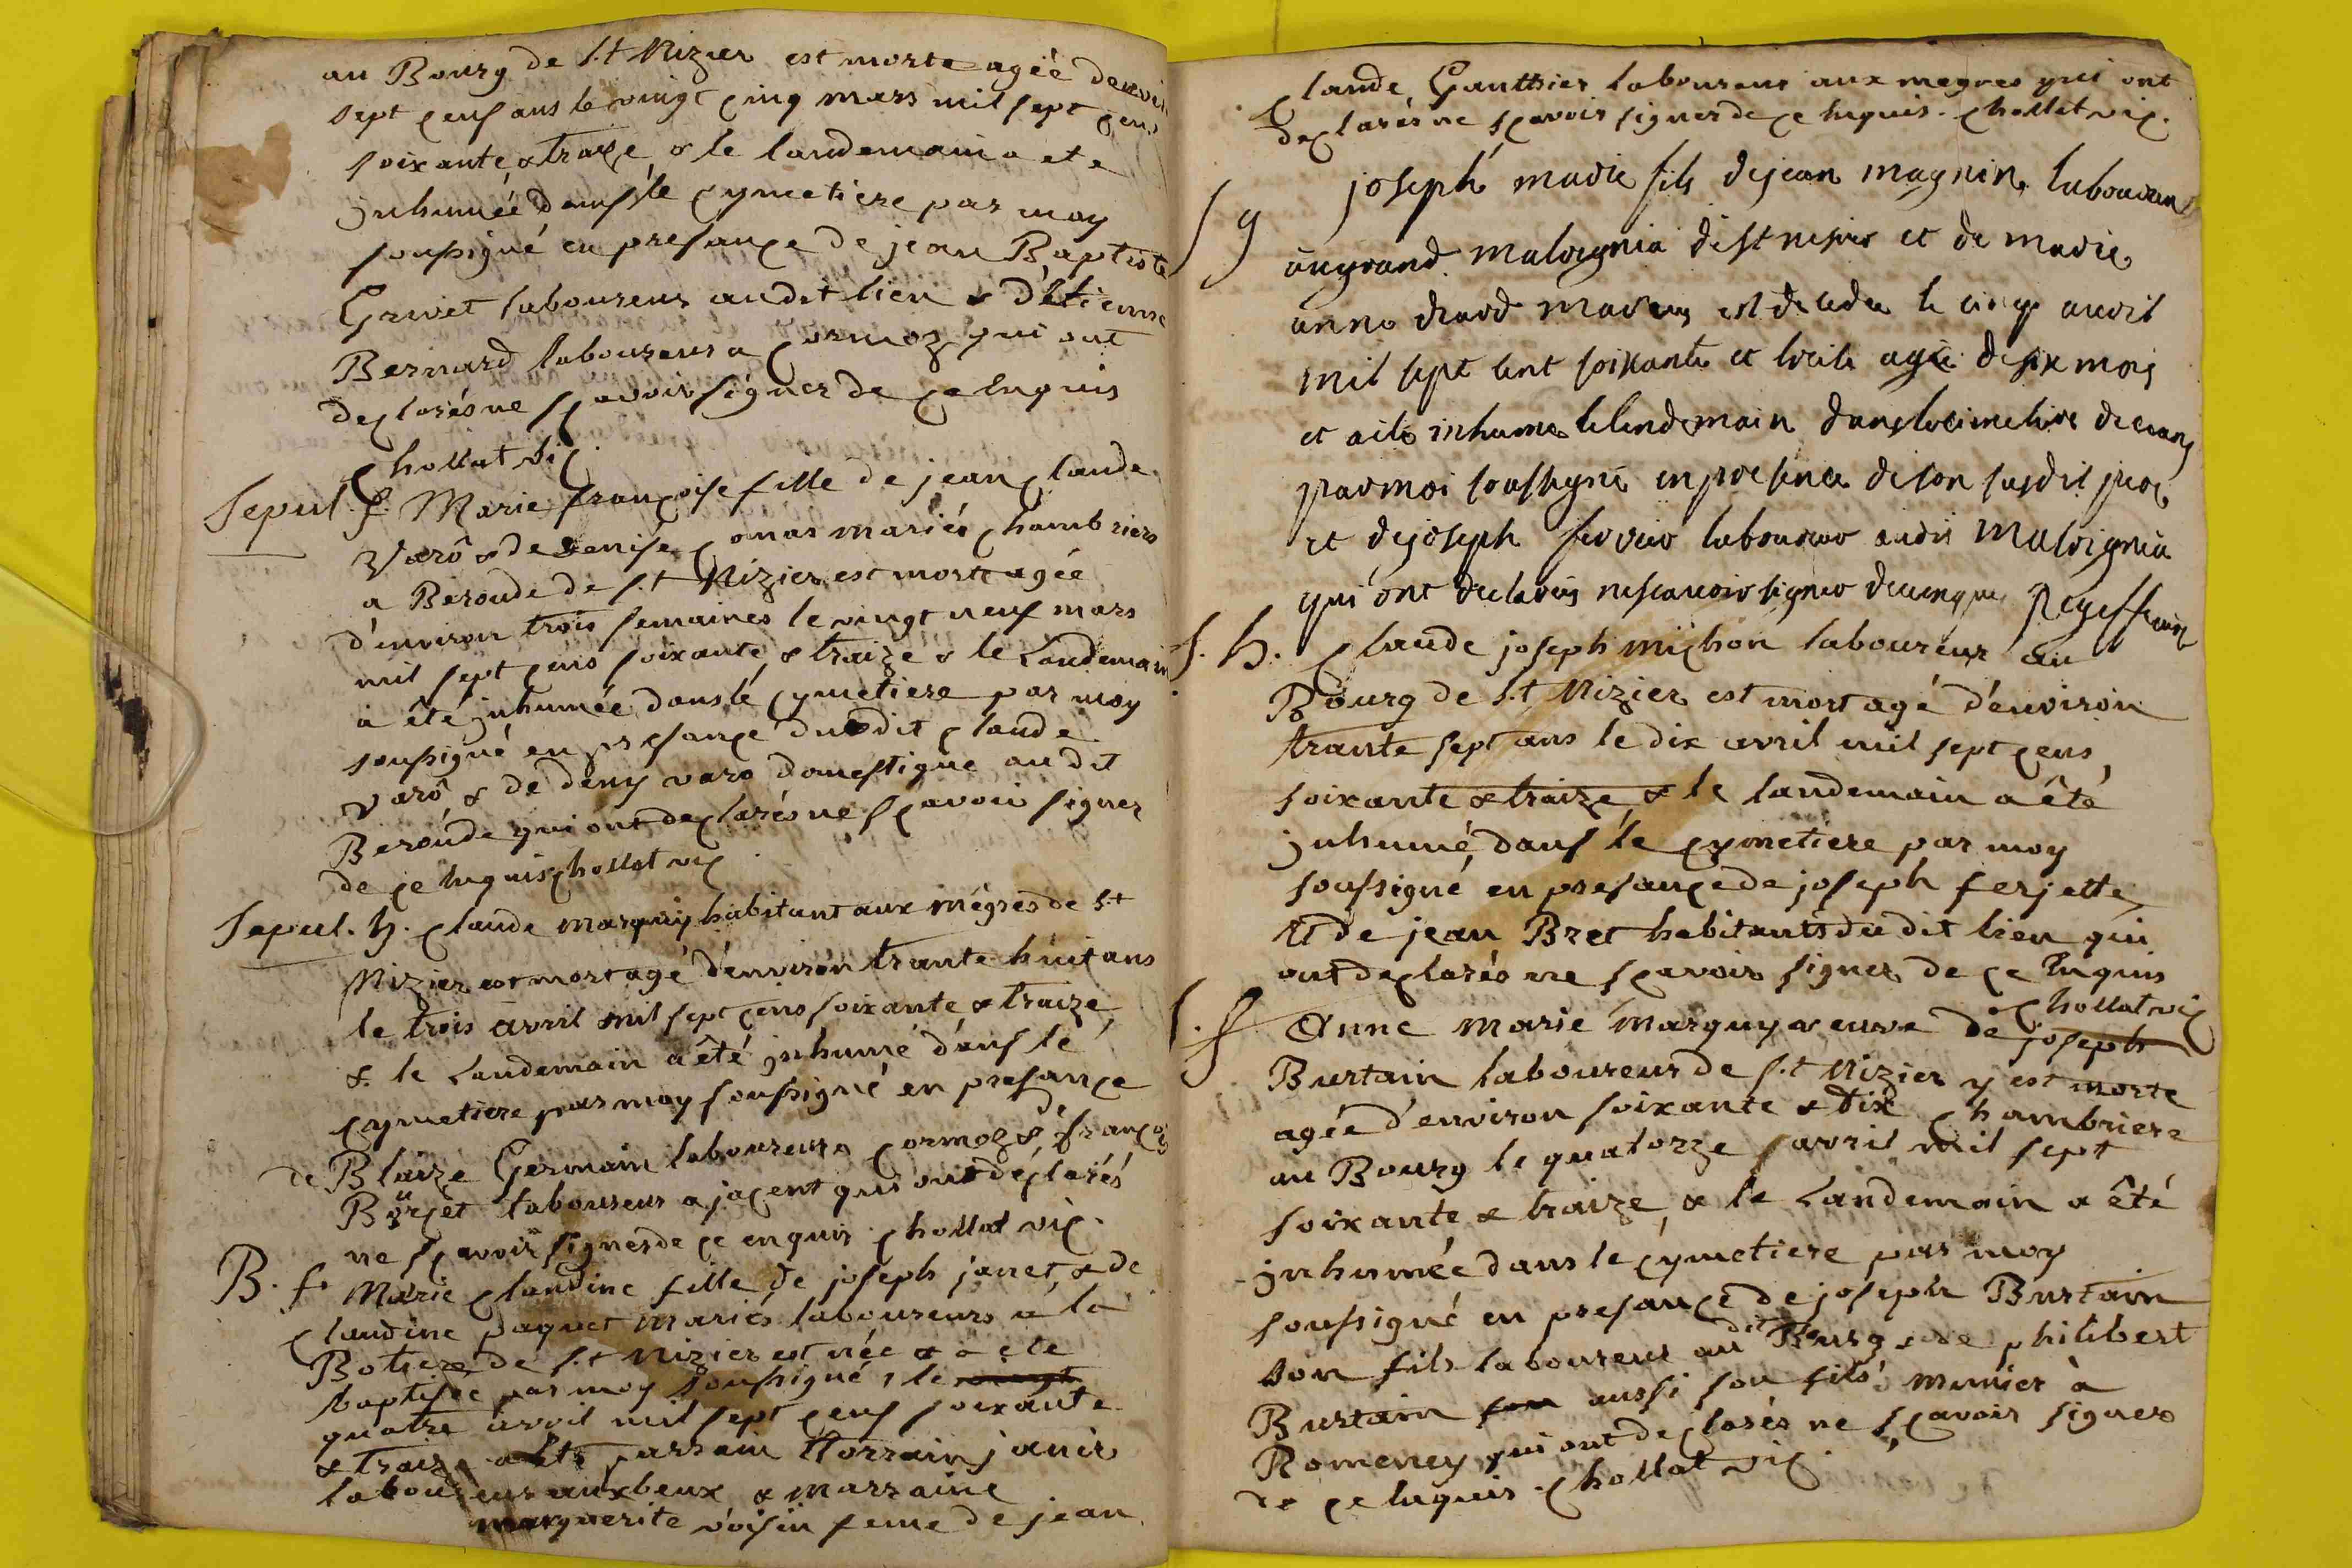 au Bourg de S.t Nizier est morte agée
sept cens ans le vingt cinq mars mil sept cens
soixante & traize & le landemain a ete
inhumée dans le cymetiere par moy
soussigné en presance de jean Baptiste
Grivet laboureur au dit lieu & d'Etienne
Bernard laboureur a Cormoz qui ont
declarés ne sçavoir signer de ce enquis
Chollat vic.
Sepul. f. Marie françoise fille de jean claude
Varô & de denise conas mariés chambriers
a Beroude de S.t Nizier est morte agée
d'environ trois semaines le vingt neuf mars
mil sept cens soixante & traize & le Landemain
a été inhumée dans le cymetiere par moy
soussigné en presance du dit claude
varô & de deny varo domestique au dit
Beroude qui ont declarés ne sçavoir signer
de ce enquis chollat vic
Sepul. h. claude marquy habitant aux mégres de S.t
Nizier est mort agé d'environ trante huit ans
le trois avril mil sept cens soixante & traize
& le Landemain a été inhumé dans le
cymetiere par moy soussigné en presance
de Blaize Germain laboureur a cormoz & françois
laboureur a jacent qui ont déclarés
ne sçavoir signer de ce enquis chollat vic.
B. f. Marie claudine fille de joseph janet & de
claudine paquet mariés laboureurs a la
Botiere de S.t Nizier est née & a ete
baptisée par moy soussigné le vingt
quatre avril mil sept cens soixante
& traize a été parrain janir
laboureur aux beux & marraine
marguerite voisin feme de jean
claude Gauthier laboureur aux megres qui ont
declarés ne sçavoir signer de ce enquis. chollat vic.
S g joseph marie fils de jean magnin laboureur
au grand malvignia de st nisier et de marie
anne mariés est decede le cinq avril
mil sept cent soixante et treile agée de six mois
et aité inhume le lendemain dans le cimetiere de ceans
par moi soussigné en presence de son susdit pere
et de joseph ferrier laboureur audit malvignia
qui ont declarés ne scavoir signer de ce enquis
S. h. claude joseph michon laboureur au
Bourg de S.t Nizier est mort agé d'environ
trante sept ans le dix avril mil sept cens
soixante & traize & le landemain a été
inhumé dans le cymetiere par moy
soussigné en presance de joseph ferjette
et de jean Bret habitants du dit lieu qui
ont declarés ne sçavoir signer de ce enquis
chollat vic
S. f Anne marie marguy veuve de joseph
Burtain laboureur de S.t Nizier y est morte
agée d'environ soixante & dix chambriere
au Bourg le quatorze avril mil sept
soixante & traize & le Landemain a été
inhumée dans le cymetiere par moy
soussigné en presance de joseph Burtain
son fils laboureur au dit Bourg & de philibert
Burtain son aussi son fils munier à
Romeney qui ont declarés ne sçavoir signer
de ce enquis. chollat vic.